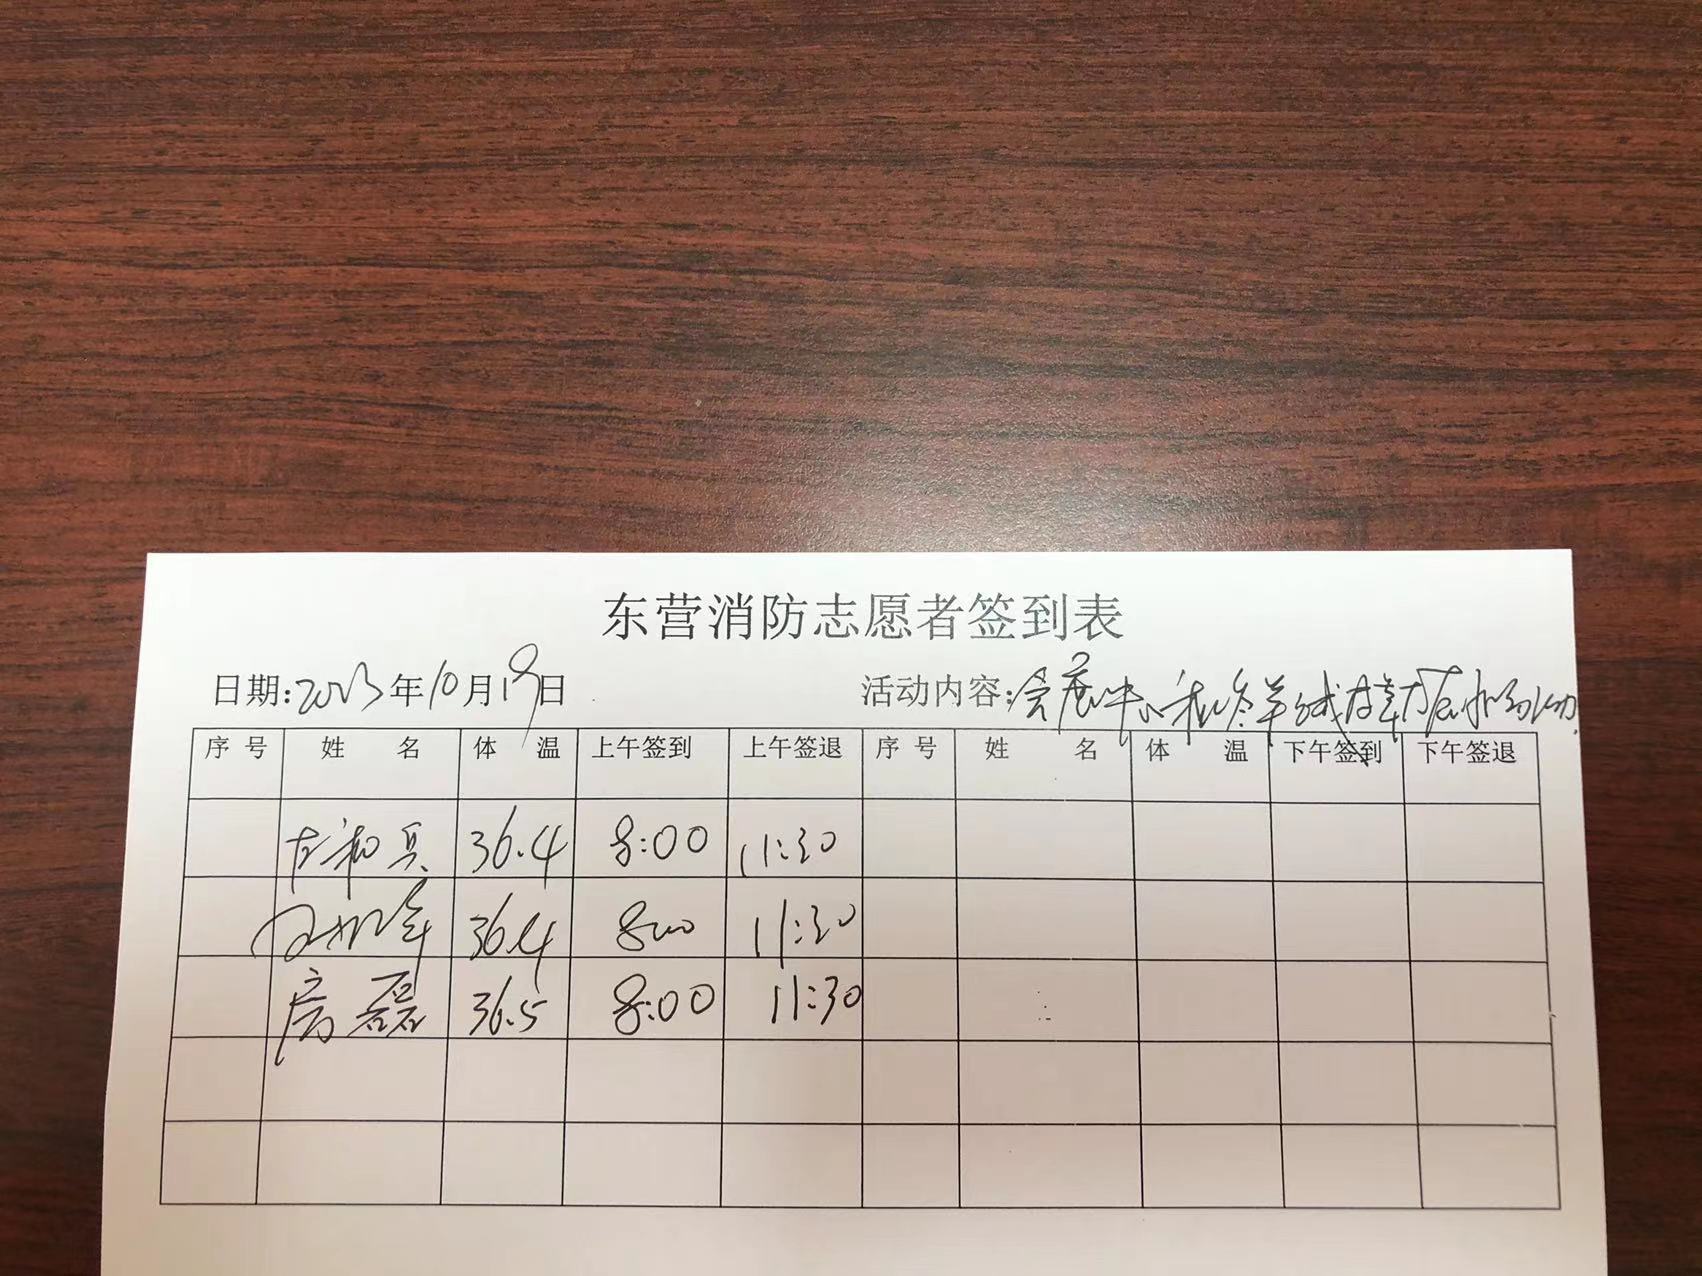 东营消防志愿者签到表
日期:2023年10月19日 活动内容:会展中心秋冬羊绒皮草
序号 姓名 体温 上午签到 上午签退 序号 姓名 体温 下午签到 下午签退
36.4 8:00 11:30
36.4 8:00 11:30
房磊 36.5 8:00 11:30